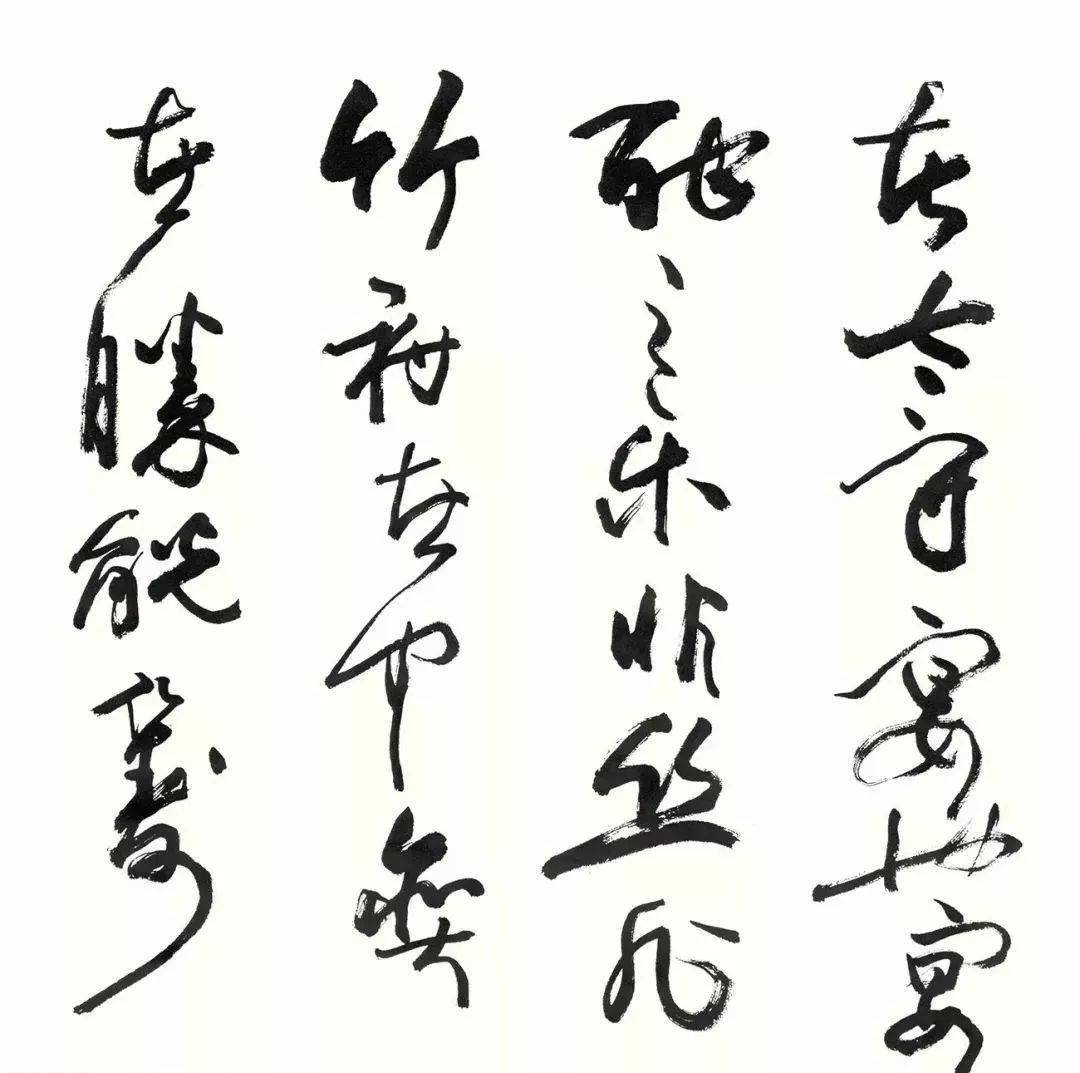 者太守宴也宴
酣之乐非丝非
竹射者中弈
者勝觥籌